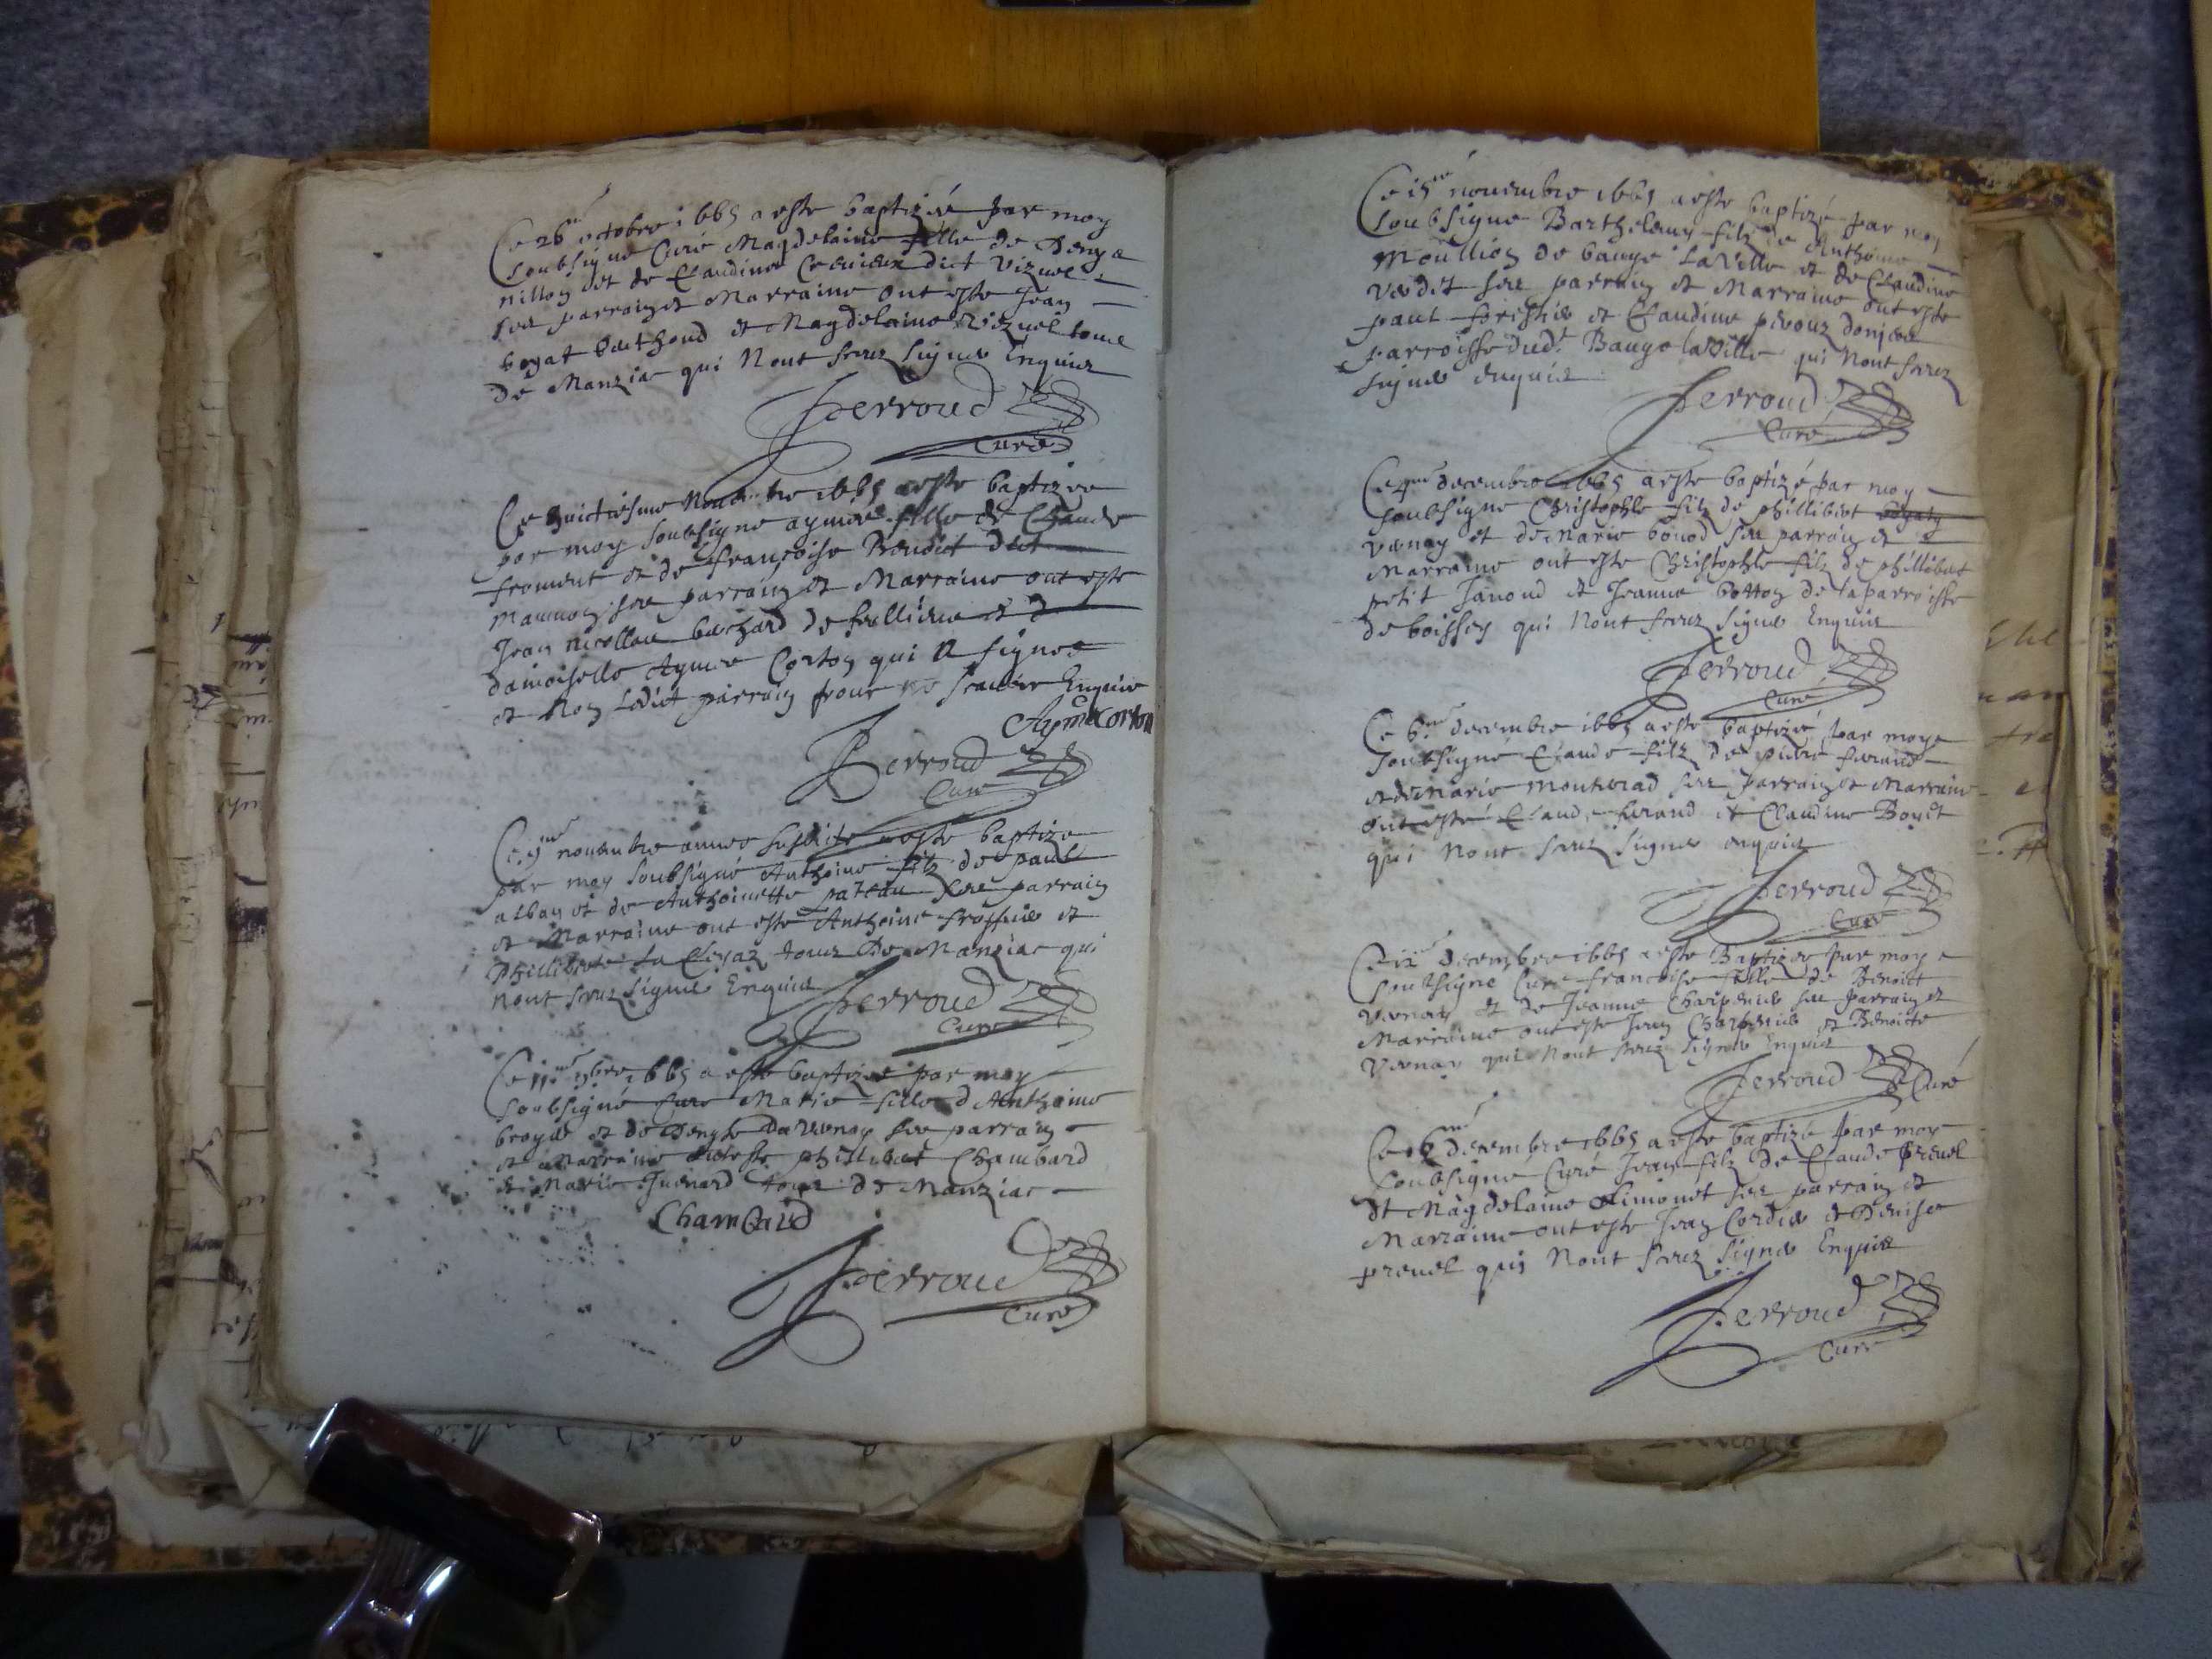 Ce 26me octobre 1665 a este baptizée par moy
soubsigne Curé Magdelaine fille de Denys
nillon et de Claudine Cerisier dict Viznel
ses parrain et Marraine ont este Jean
bozat berthoud et Magdelaine Viznel tous
de Manziac qui Nont sceuz signer Enquis
Perroud
Curé
Ce huictiesme Novembre 1665 a este baptizee
par moy soubsigne aymee fille de Claude
froment et de françoise Benoict dict
mannon ses parrain et Marraine ont este
Jean nicollas bachard de et
damoiselle Aymee Corton qui a signee
et Non Ledict parrain pour ne scavoir Enquis
Aymée Corton
Perroud
Curé
Ce 9me novembre annee susdite a este baptize
par moy soubsigné Anthoine filz de paul
alban et de Anthoinette pateau ses parrain
et Marraine ont este Anthoine et
Phillibert La tous De Manziac qui
nont sceuz signer Enquis
Perroud
Curé
Ce 11me 9bre 1665 a este baptizee par moy
soubsigné Curé Marie fille d Anthoine
broyer et de Denyse Duvernay ses parrain
et Marraine ont este phillibert Chambard
et Marie Juenard tous de Manziac
Chambard
Perroud
Curé
Ce 15me novembre 1665 a este baptizé par moy
soubsigne Barthelemy filz de Anthoine
Moullion de bauge La Ville et de Claudine
verdet ses parrain et Marraine ont este
paul forestier et Claudine pivouz
parroisse dudt Bauge laville qui Nont sceuz
signer enquis
Perroud
Curé
Ce 4me decembre 1665 a este baptizé par moy
soubsigne Christophle filz de phillibert
vernay et de Marie bonod ses parrain et
Marraine ont este Christophle filz de phillibert
petit Janoud et Jeanne botton de la parroisse
de boissey qui Nont sceuz signer Enquis
Perroud
Curé
Ce 6me decembre 1665 a este baptizé par moy
soubsigné Claude filz de pierre furand
et de Marie monterad ses parrain et Marraine
ont esté Claude furand et Claudine
qui Nont sceuz signer enquis
Perroud
Curé
Ce decembre 1665 a este Baptizee par moy
soubsigne Curé françoise fille de Benoict
vernay et de Jeanne Charpenier ses parrain et
Marraine ont este Jean Charpenier et Benoicte
Vernay qui Nont sceuz signer Enquis
Perroud Curé
Ce 16me decembre 1665 a este baptizé par moy
soubsigne Curé Jean filz de Claude prevel
et Magdelaine Limonet ses parrain et
Marraine ont este Jean Cordier et Denise
prevel qui Nont sceuz signer Enquis
Perroud
Curé